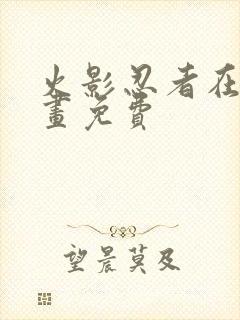 火影忍者在
畫免費
望晨莫及